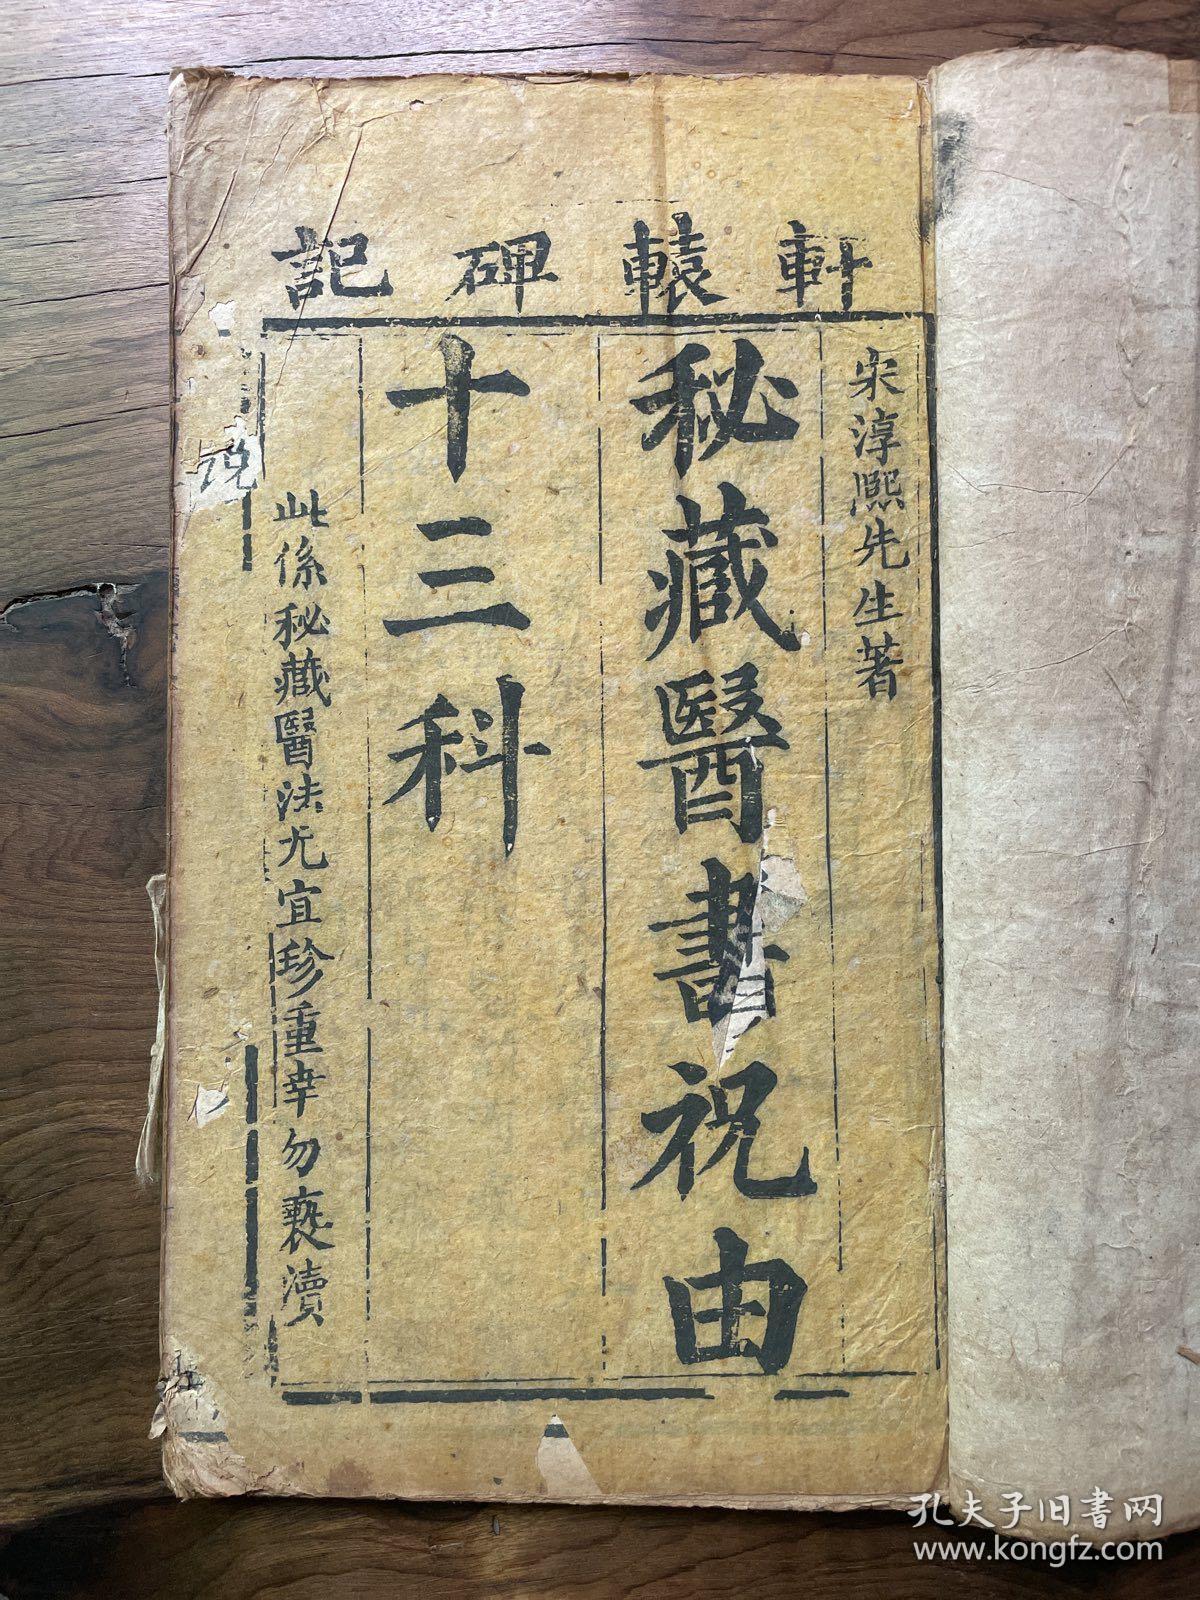 軒轅碑記
宋淳熙先生著
秘藏醫書祝由
十三科
此係秘藏醫法尤宜珍重幸勿褻瀆
说
孔夫子旧书网
www.kongfz.com